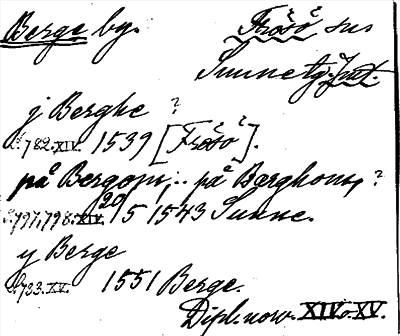 Berge by. Frösö sns
Sunne tg. Jmt.
j Berghe ?
S. 782. XIV. 1539 [Frösö].
på Bergom, .. på Barghom, ?
S. 797, 798. XIV. 20/5 1543 Sunne.
y Berge
S. 733. XV. 1551 Berge.
Dipl. norv. XIV o. XV.